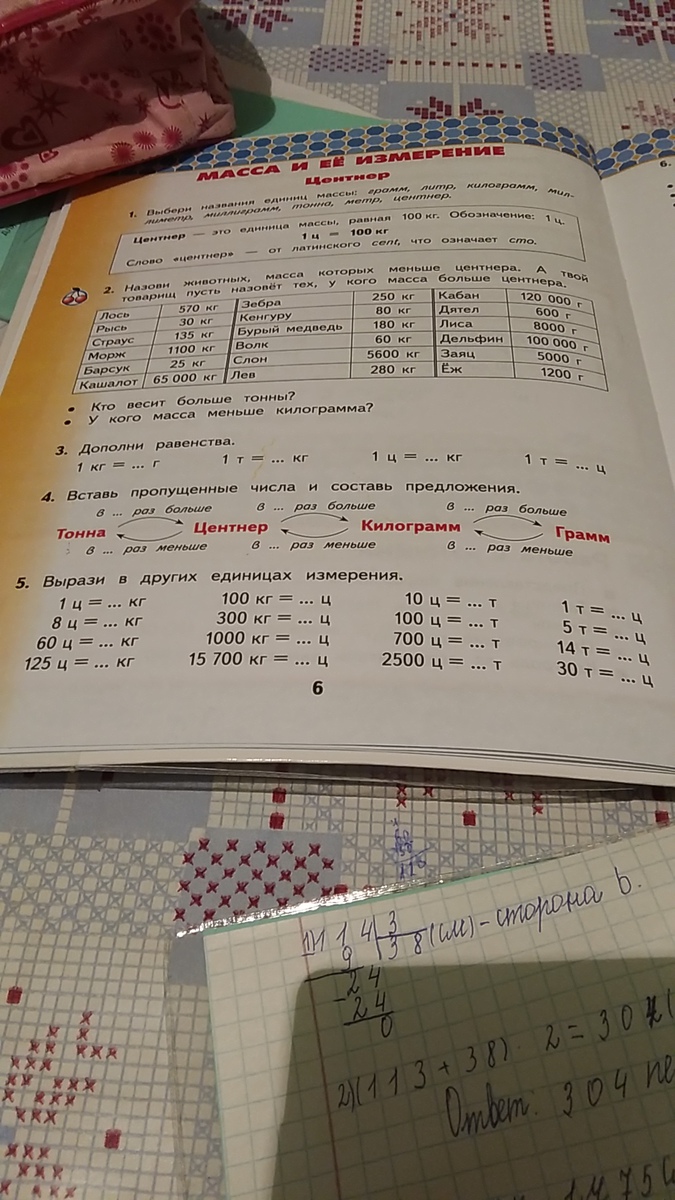 МАССА И ЕЁ ИЗМЕРЕНИЕ
Центнер
1. Выбери названия единиц массы: грамм, литр, килограмм, мил-
лиметр, миллиграмм, тонна, метр, центнер.
Центнер — это единица массы, равная 100 кг. Обозначение: 1 ц.
1 ц = 100 кг
Слово «центнер» — от латинского cent, что означает сто.
2. Назови животных, масса которых меньше центнера. А твой
товарищ пусть назовёт тех, у кого масса больше центнера.
Лось 570 кг Зебра 250 кг Кабан 120 000 г
Рысь 30 кг Кенгуру 80 кг Дятел 600 г
Страус 135 кг Бурый медведь 180 кг Лиса 8000 г
Морж 1100 кг Волк 60 кг Дельфин 100 000 г
Барсук 25 кг Слон 5600 кг Заяц 5000 г
Кашалот 65 000 кг Лев 280 кг Ёж 1200 г
• Кто весит больше тонны?
• У кого масса меньше килограмма?
3. Дополни равенства.
1 кг = ... г 1 т = ... кг 1 ц = ... кг 1 т = ... ц
4. Вставь пропущенные числа и составь предложения.
в ... раз больше в ... раз больше в ... раз больше
Тонна Центнер Килограмм Грамм
в ... раз меньше в ... раз меньше в ... раз меньше
5. Вырази в других единицах измерения.
1 ц = ... кг 100 кг = ... ц 10 ц = ... т 1 т = ... ц
8 ц = ... кг 300 кг = ... ц 100 ц = ... т 5 т = ... ц
60 ц = ... кг 1000 кг = ... ц 700 ц = ... т 14 т = ... ц
125 ц = ... кг 15 700 кг = ... ц 2500 ц = ... т 30 т = ... ц
6
6.
1) 1 1 4 3
9 3 8 (см) - сторона b.
- 2 4
2 4
0
2) (1 1 3 + 3 8) · 2 = 3 0
Ответ: 3 0 4